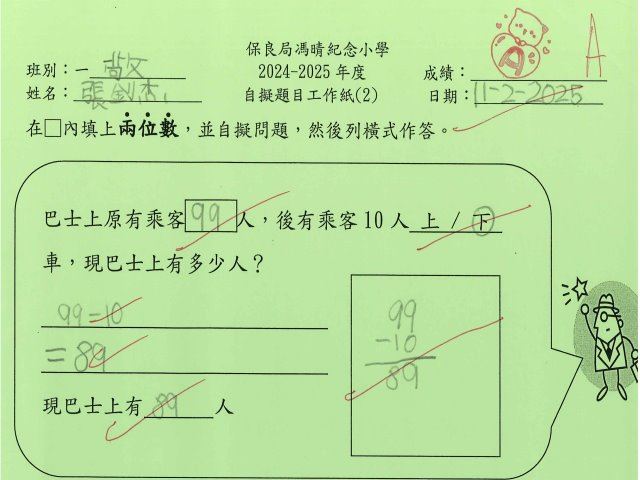 保良局馮晴紀念小學
班別：一 敬 2024-2025 年度 成績： A A
姓名： 張劍杰 自擬題目工作紙(2) 日期： 11-2-2025
在□內填上兩位數，並自擬問題，然後列橫式作答。
巴士上原有乘客 99 人，後有乘客 10 人 上 / 下
車，現巴士上有多少人？
99-10
= 89
現巴士上有 89 人
99
-10
89